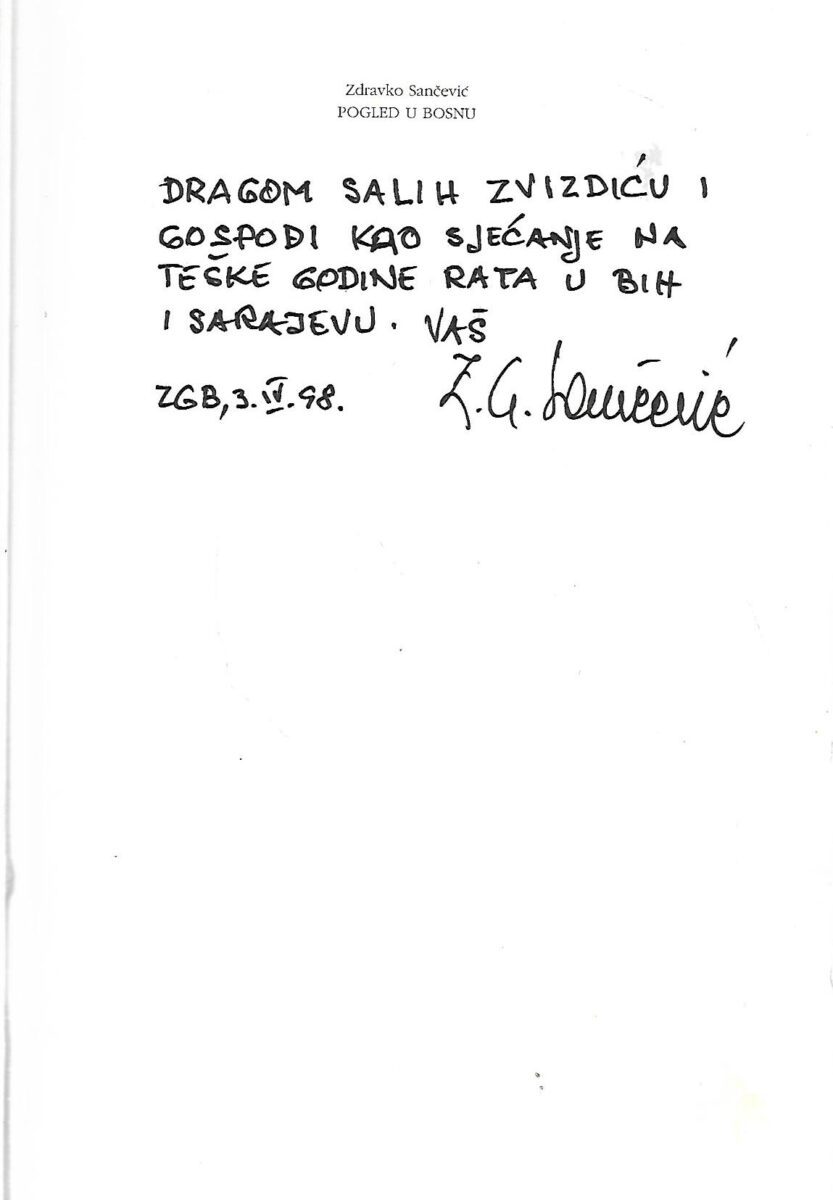 Zdravko Sančević
POGLED U BOSNU
DRAGOM SALIH ZVIZDIĆU I
GOSPOĐI KAO SJEĆANJE NA
TEŠKE GODINE RATA U BIH
I SARAJEVU. VAŠ
ZGB, 3. IV. 98. Z. G. Sančević